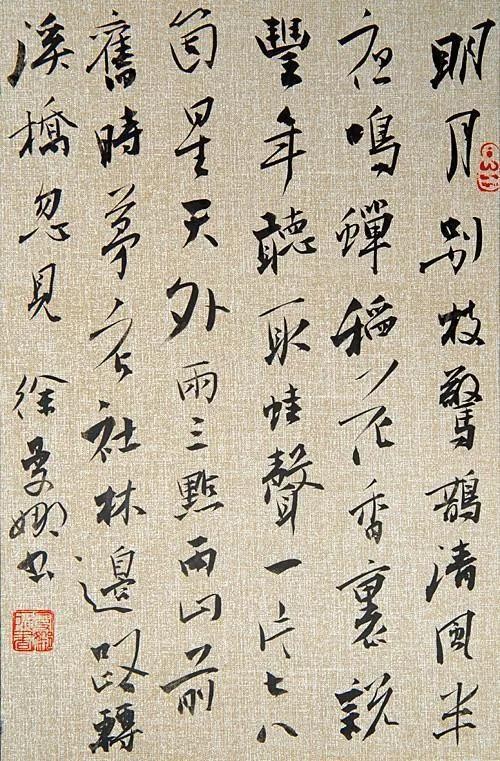 明月别枝驚鵲清風半
夜鳴蟬稻花香裏説
豐年聽取蛙聲一片七八
箇星天外兩三點雨山前
舊時茅店社林邊路轉
溪橋忽見 徐曼娜书